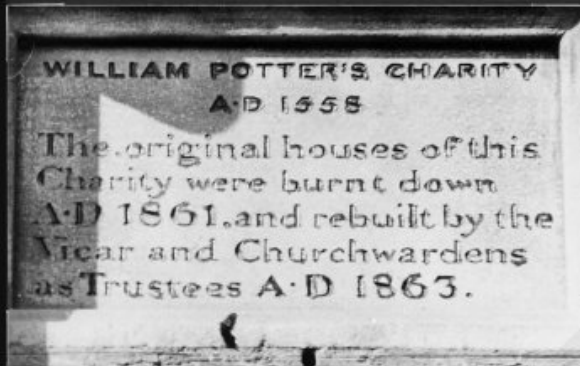 WILLIAM POTTER'S CHARITY
A·D 1558
The original houses of this
Charity were burnt down
A·D 1861. and rebuilt by the
Vicar and Churchwardens
as Trustees A·D 1863.